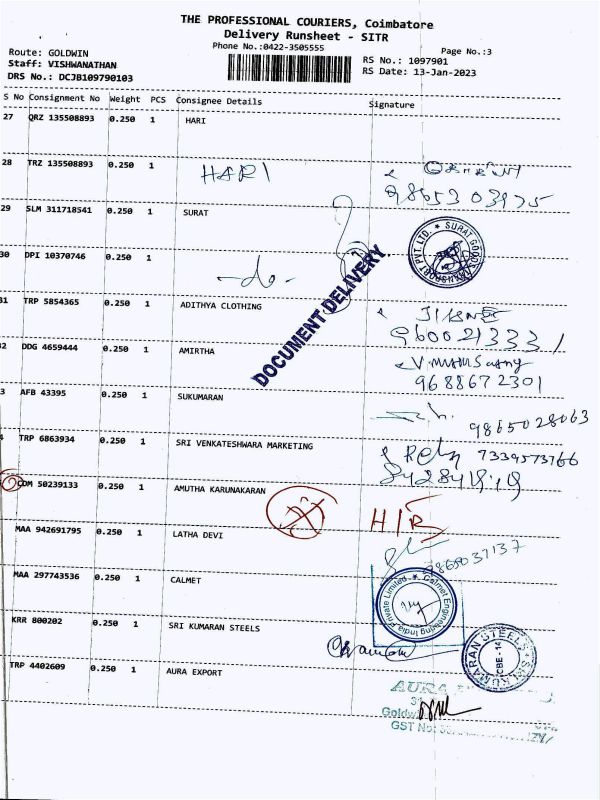 THE PROFESSIONAL COURIERS, Coimbatore
Delivery Runsheet - SITR
Phone No.:0422-3505555
Page No.:3
Route: GOLDWIN
Staff: VISHWANATHAN
DRS No.: DCJB109790103
RS No.: 1097901
RS Date: 13-Jan-2023
S No Consignment No Weight PCS Consignee Details Signature
27 QRZ 135508893 0.250 1 HARI
28 TRZ 135508893 0.250 1 HARI
9865303975
29 SLM 311718541 0.250 1 SURAT
SURAT GOODS TRANSPORT PVT. LTD.
30 DPI 10370746 0.250 1 -do-
DOCUMENT DELIVERY
31 TRP 5854365 0.250 1 ADITHYA CLOTHING
9600213331
2 DDG 4659444 0.250 1 AMIRTHA
9688672301
3 AFB 43395 0.250 1 SUKUMARAN
9865028063
4 TRP 6863934 0.250 1 SRI VENKATESHWARA MARKETING
7339573766
COM 50239133 0.250 1 AMUTHA KARUNAKARAN
H/R
MAA 942691795 0.250 1 LATHA DEVI
9865037137
MAA 297743536 0.250 1 CALMET
Calmet Engineering India Private Limited
KRR 800202 0.250 1 SRI KUMARAN STEELS
SRI KUMARAN STEELS
CBE-14
TRP 4402609 0.250 1 AURA EXPORT
AURA
GST No: